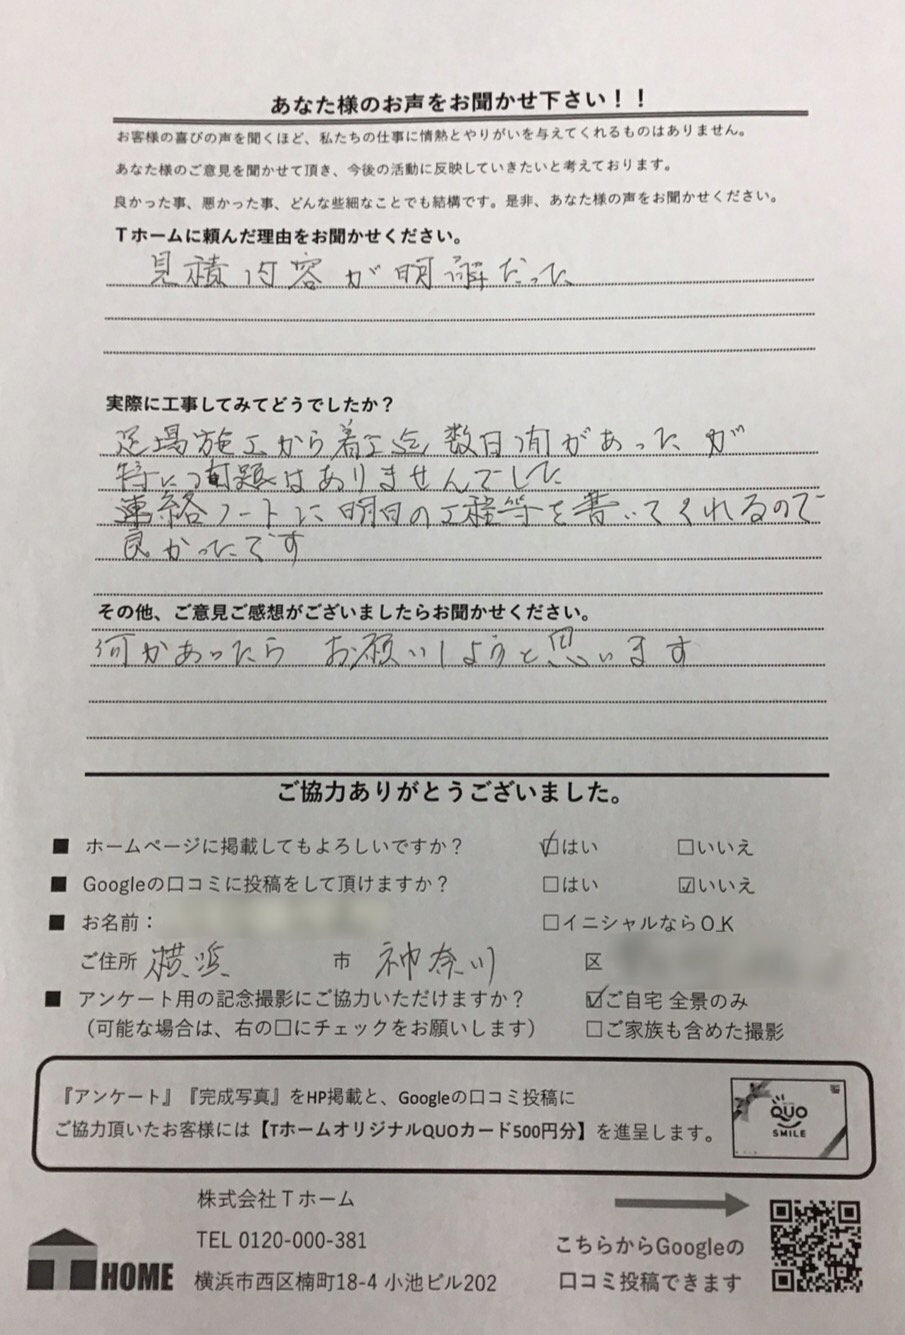 あなた様のお声をお聞かせ下さい！！
お客様の喜びの声を聞くほど、私たちの仕事に情熱とやりがいを与えてくれるものはありません。
あなた様のご意見を聞かせて頂き、今後の活動に反映していきたいと考えております。
良かった事、悪かった事、どんな些細なことでも結構です。是非、あなた様の声をお聞かせください。
Tホームに頼んだ理由をお聞かせください。
見積内容が明解だった
実際に工事してみてどうでしたか？
足場施工から着工迄数日間があったが
特に問題はありませんでした
連絡ノートに明日の工程等を書いてくれるので
良かったです
その他、ご意見ご感想がございましたらお聞かせください。
何かあったら お願いしようと思います
ご協力ありがとうございました。
■ ホームページに掲載してもよろしいですか？ ☑はい □いいえ
■ Googleの口コミに投稿をして頂けますか？ □はい ☑いいえ
■ お名前： □イニシャルならOK
ご住所 横浜 市 神奈川 区
■ アンケート用の記念撮影にご協力いただけますか？ ☑ご自宅 全景のみ
（可能な場合は、右の□にチェックをお願いします） □ご家族も含めた撮影
『アンケート』『完成写真』をHP掲載と、Googleの口コミ投稿に
ご協力頂いたお客様には【TホームオリジナルQUOカード500円分】を進呈します。
QUO
SMILE
株式会社Tホーム
TEL 0120-000-381
横浜市西区楠町18-4 小池ビル202
T HOME
こちらからGoogleの
口コミ投稿できます